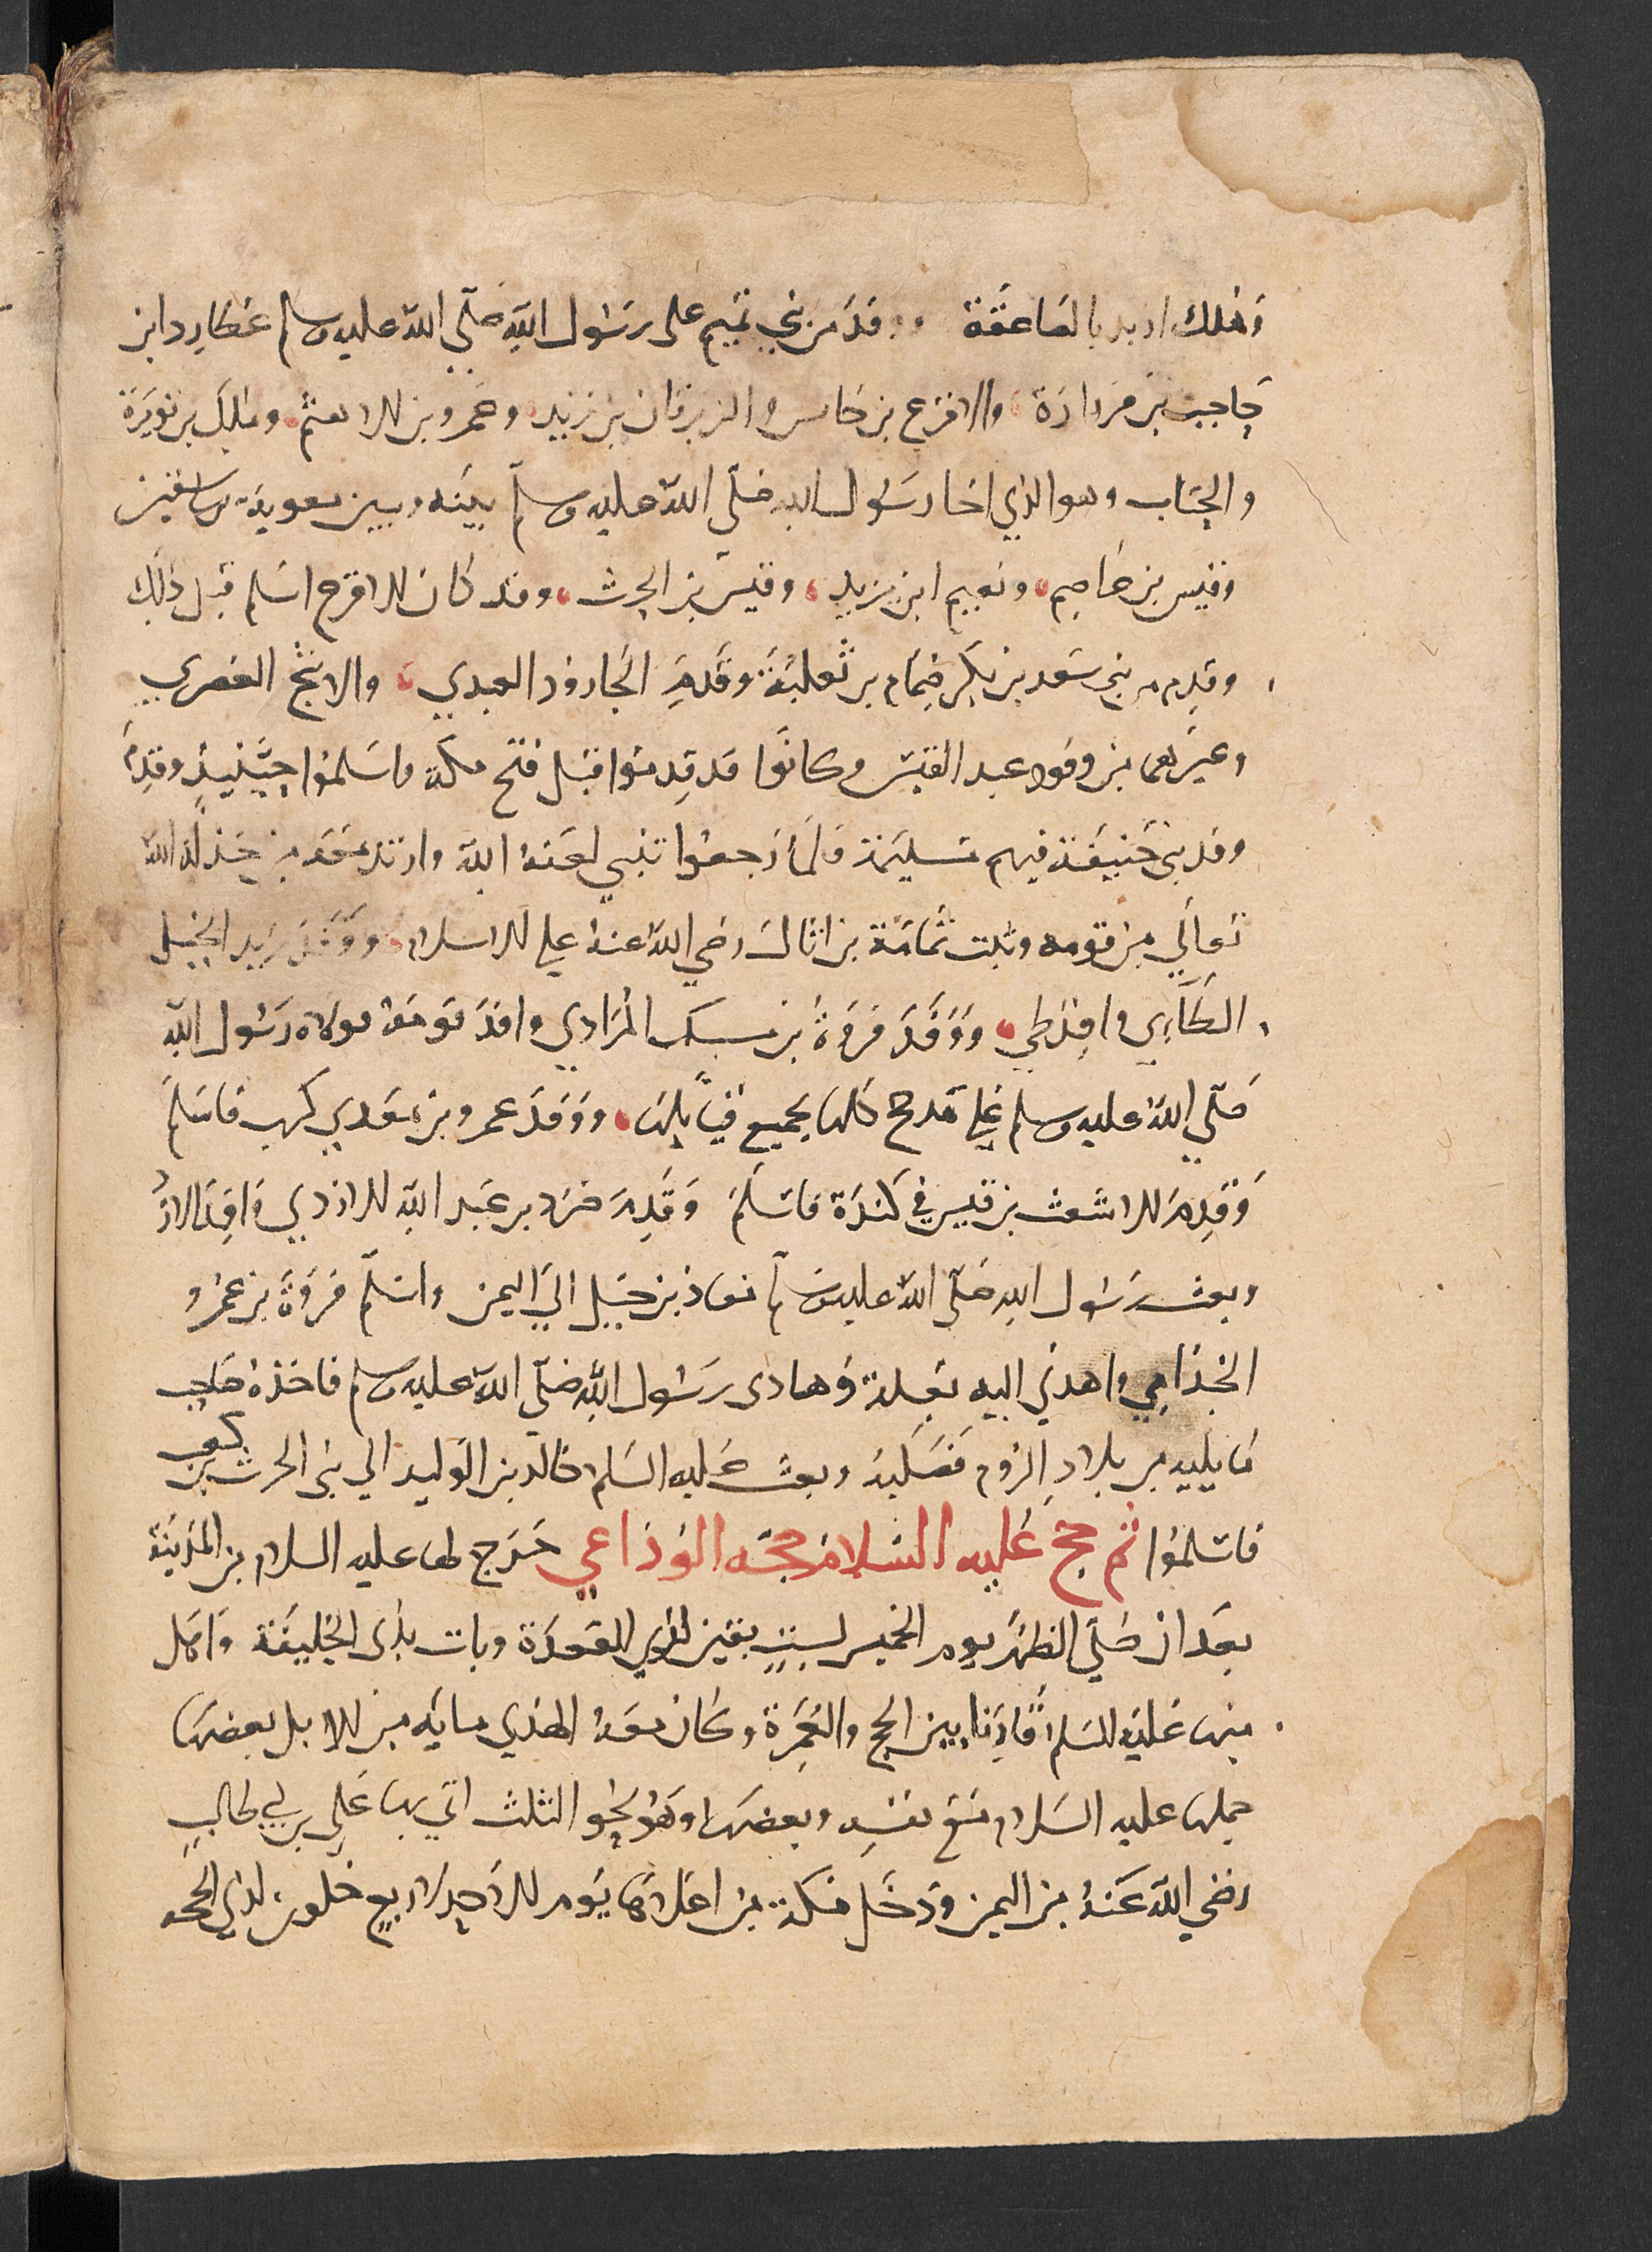 وَهَلك اربد بالصَاعقة ووفد من بني تميم على رسُول الله صَلّي الله عليه وسلم عطارد ابن
حَاجب بن زرارَة والاقرَع بن حَابس والزبرقان بن زيد وعَمرو بن الاهتم ومالك بن نويرَة
والحتات وهو الذي اخا رسُول الله صَلّي الله عليه وسلم بينَه وبين معوية بن سفين
وقيس بن عَاصِم ونعيم ابن يزيد وقيسَ بن الحرث وقد كان الاقرع اسَلم قبل ذلك
وقدِم من بني سَعد بن بكر ضِمَام بن ثعلبَة وقَدِمَ الجَارود العبدي والاشج العصري
وغيرَهما من وفود عبد القيس وكانوا قد قدِموا قبل فتح مكة واسَلمُوا حِينَيذٍ وقدِمَ
وفد بني حَنيفة فيهم مسَيلمة فلَما رَجعُوا تنبي لعَنهُ الله وارتد معَه من خذله الله
تعَالي من قومه وثبت ثمامَة بن اثال رضي الله عنه علي الاسلام ووَفَدَ زيد الخيل
الطَاىي وافد طي ووَفَدَ فروَةُ بن مسيك المُرَادي وافدَ قومَهُ فولاه رَسُول الله
صَلّي الله عليه وسلم عَلي مَدحج كلها بجميع قبَايلها ووَفدَ عمرو بن معَدي كرب فاسَلمَ
وَقدِمَ الاشعث بن قيس في كندَة فاسَلمَ وَقَدِمَ صُرَد بن عَبد الله الازدي وَافِدَ الازد
وبعث رسُول الله صَلّي الله عليه وسلم معاذ بن جبَل الي اليمن واسَلم فروَةُ بن عَمرو
الجُذامِي واهدَي اليه بغلة وَهادى رسُول الله صَلّي الله عليه وسلم فاخذهُ صَاحب
مَا يليه من بلادِ الرُوم فصَلبهُ وبعث عَليه السَلام خالد بن الوليد الي بني الحرث بن كعب
فاسَلمُوا ثم حج عَليه السَلام حجَه الوَدَاعي خرَج لها عليه السلام من المدينَة
بعَد ان صَلي الظهَر يوم الخميس لستٍ بقين لذي القعدَة وبات بذى الحُليفَة وَاهَل
منها عَليه السَلم قارنا بين الحج والعُمرَة وكان معَهُ الهَدي مايَة من الابل بعضها
حملها عليه السَلام مَع نفسِه وبعضها وَهو نحو الثلث اتي بها عَلي بن ابي طالبٍ
رضي الله عَنهُ من اليمن ودَخَل مَكة من اعلاهَا يَوم الاحد لاربعٍ خلون لذي الحجه